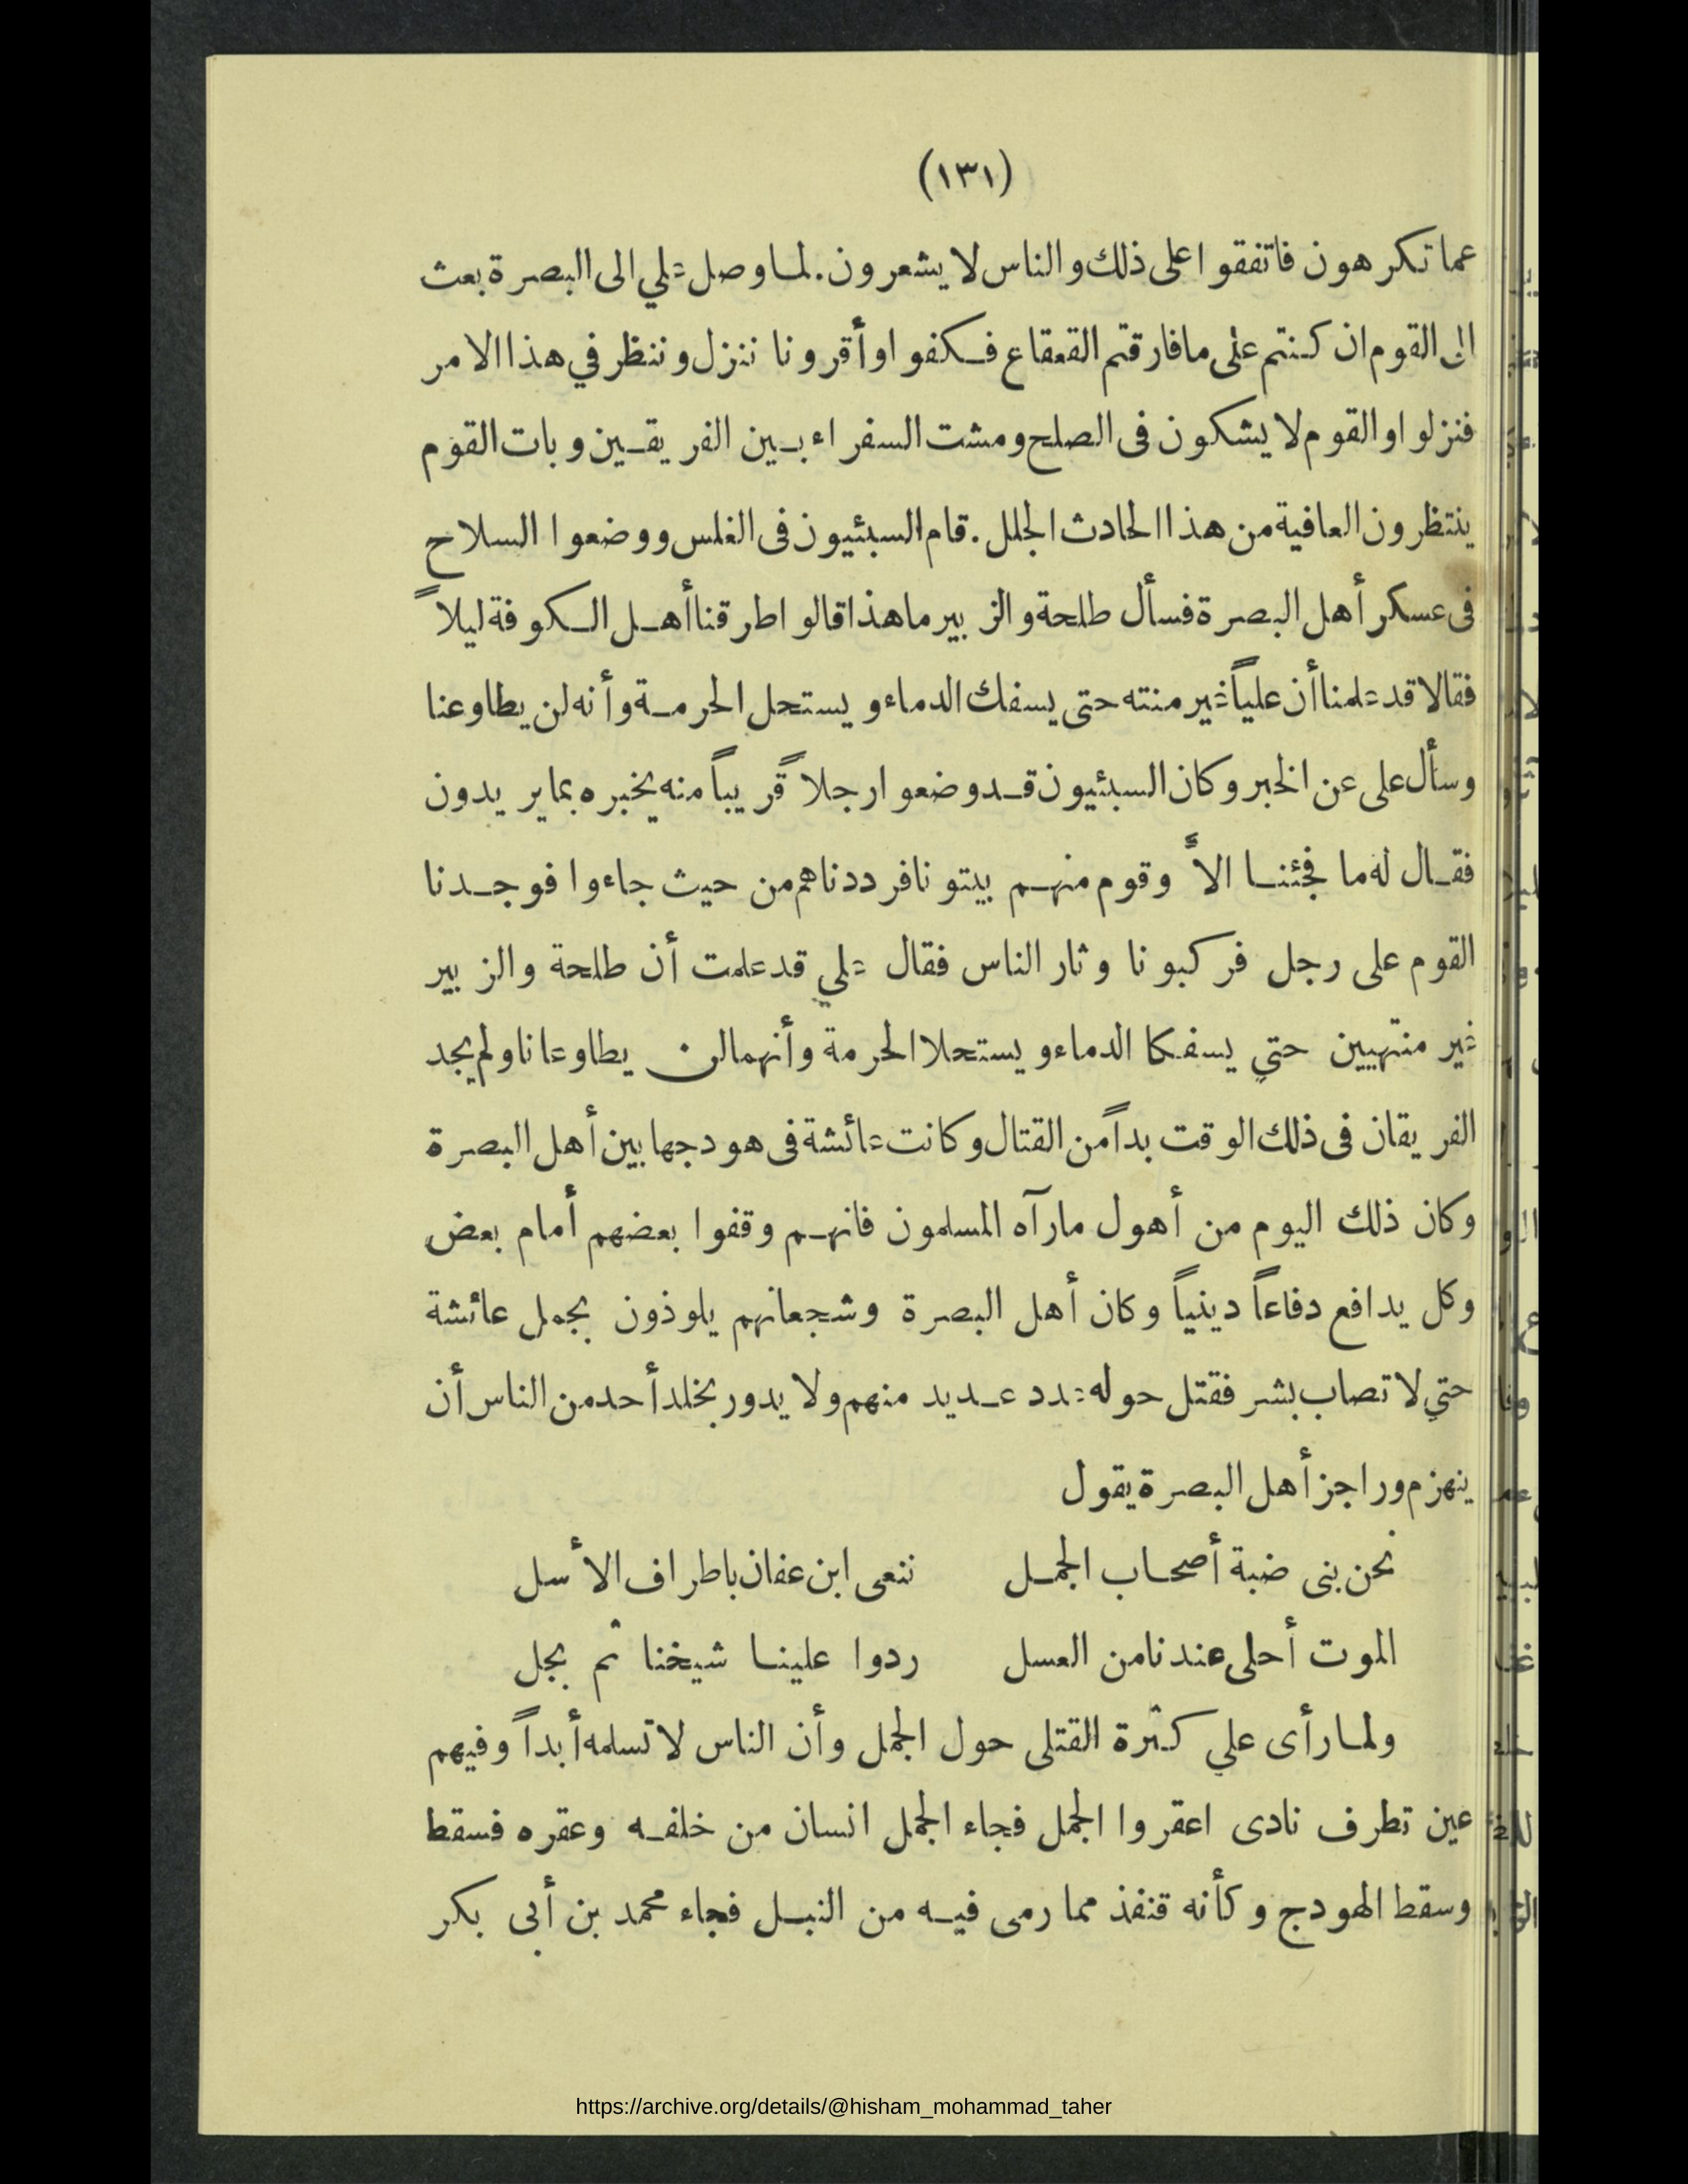 (١٣١)
عما تكرهون فاتفقوا على ذلك والناس لا يشعرون. لما وصل علي الى البصرة بعث
الى القوم ان كنتم على ما فارقتم القعقاع فكفوا وأقرونا ننزل وننظر في هذا الامر
فنزلوا والقوم لا يشكون فى الصلح ومشت السفراء بين الفريقين وبات القوم
ينتظرون العافية من هذا الحادث الجلل. قام السبئيون فى الغلس ووضعوا السلاح
فى عسكر أهل البصرة فسأل طلحة والزبير ما هذا قالوا طرقنا أهل الكوفة ليلاً
فقالا قد علمنا أن علياً غير منته حتى يسفك الدماء ويستحل الحرمة وأنه لن يطاوعنا
وسأل على عن الخبر وكان السبئيون قد وضعوا رجلا قريباً منه يخبره بما يريدون
فقال له ما فجئنا الاّ وقوم منهم بيتونا فرددناهم من حيث جاءوا فوجدنا
القوم على رجل فركبونا وثار الناس فقال علي قد علمت أن طلحة والزبير
غير منتهيين حتي يسفكا الدماء ويستحلا الحرمة وأنهما لن يطاوعانا ولم يجد
الفريقان فى ذلك الوقت بداً من القتال وكانت عائشة فى هودجها بين أهل البصرة
وكان ذلك اليوم من أهول ما رآه المسلمون فانهم وقفوا بعضهم أمام بعض
وكل يدافع دفاعاً دينياً وكان أهل البصرة وشجعانهم يلوذون بجمل عائشة
حتي لا تصاب بشر فقتل حوله عدد عديد منهم ولا يدور بخلد أحد من الناس أن
ينهزم وراجز أهل البصرة يقول
نحن بنى ضبة أصحاب الجمل ننعى ابن عفان باطراف الأسل
الموت أحلى عندنا من العسل ردوا علينا شيخنا ثم بجل
ولما رأى علي كثرة القتلى حول الجمل وأن الناس لا تسلمه أبداً وفيهم
عين تطرف نادى اعقروا الجمل فجاء الجمل انسان من خلفه وعقره فسقط
وسقط الهودج وكأنه قنفذ مما رمى فيه من النبل فجاء محمد بن أبى بكر
https://archive.org/details/@hisham_mohammad_taher